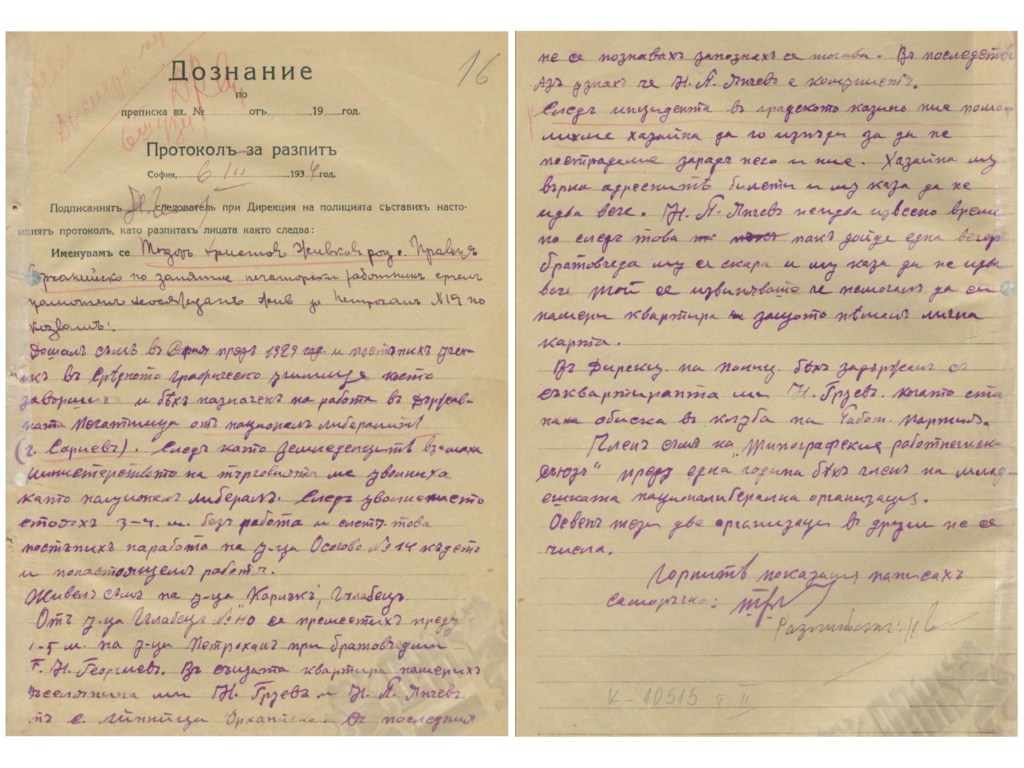 16
Дознание
по
преписка вх. № отъ 19 год.
Протоколъ за разпитъ
София, 6 III 1934 год.
Подписаниятъ следовател при Дирекция на полицията съставихъ насто-
ящиятъ протоколъ, като разпитахъ лицата както следва:
Именувам се Тодоръ Христовъ Живковъ род. с. Правецъ
Орханийско по занятие печатарски работникъ ергенъ
грамотенъ неосъждан жив. ул. Петроханъ №19 по
Дошалъ съмъ въ София презъ 1929 год. и постъпихъ уче-
никъ въ графическо училище което
завършихъ и бѣхъ назначенъ на работа въ Държав-
ната печатница отъ националъ либералитѣ
(г. Сариевъ). Следъ като земеделцитѣ взимаха
министерството на търговията ме уволниха
като националенъ либералъ. Следъ уволнението
стоехъ 3-4 м. безъ работа и следъ това
постъпихъ на работа на у-ца Осогово № 14 където
и понастоящемъ работя.
Живелъ съмъ на у-ца "Карлъкъ", Гълабецъ.
Отъ у-ца Гълабецъ № 40 се преместихъ преди
4-5 м. на у-ца Петроханъ при братовчедъ ми
Г. Н. Георгиевъ. Въ същата квартира намерихъ
съселянина ми Н. Грузевъ и Н. П. Личевъ
отъ с. Орханийско. Съ последния
не се познавахъ запознахъ се тогава. Въ последствие
азъ узнахъ че Н. П. Личевъ е комунистъ.
Следъ инцидента въ градското казино ние помо-
лихме хазаина да го изпъди за да не
пострадаме заради него и ние. Хазаина му
върна адреснитѣ билети и му каза да не
идва вече. Н. П. Личевъ не идва известно време
но следъ това пакъ дойде една вечеръ
братовчеда му се скара и му каза да не идва
вече той се извиняваше че не могалъ да си
намери квартира защото нѣмалъ лична
карта.
Въ Дирекц. на полиц. бѣхъ задържанъ съ
съквартиранта ми Н. Грузевъ когато ста-
нала обиска въ клуба на Работ. партия.
Членъ съмъ на "Типографския работнически
съюзъ" преди една година бѣхъ членъ на млад-
ежката националлиберална организация.
Освенъ тези две организации въ други не се
числа.
Горнитѣ показания написахъ
саморъчно:
Разпиталъ:
К-10515 т. II